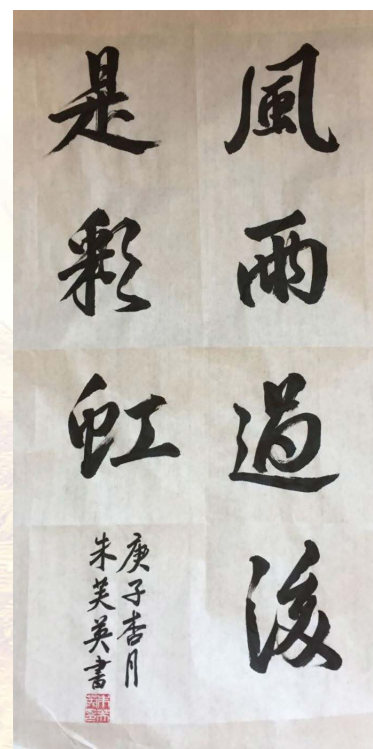 風雨過後
是彩虹
庚子杏月
朱芙英書